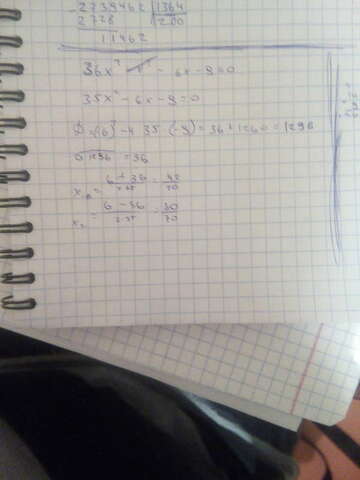 - 2739462 |1364
2728 1200
11462
36x² - x² - 6x - 9 = 0
35x² - 6x - 9 = 0
D = (6)² - 4 · 35 · (-9) = 36 + 1260 = 1296
√1296 = 36
x₁ = 6 + 36 / 2·35 = 42 / 70
x₂ = 6 - 36 / 2·35 = 30 / 70